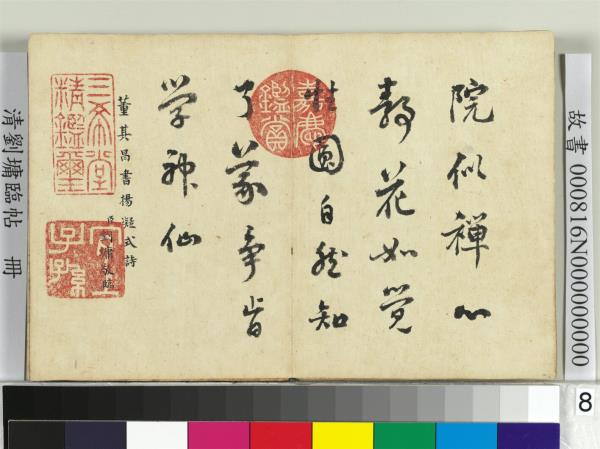 故書 000816N000000000
院似禪心
靜花如覺
性圓自然知
了義爭肯
學神仙
董其昌書揚凝式詩
臣劉墉敬臨
嘉慶鑑賞
三希堂精鑑璽
宜子孫
清劉墉臨帖 冊
8